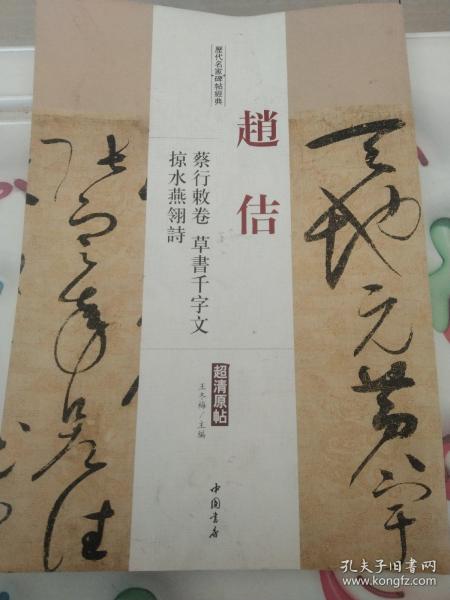 歷代名家碑帖經典
趙佶
蔡行敕卷 草書千字文
掠水燕翎詩
超清原帖
王冬梅/主编
中国书店
天地元黄宇
孔夫子旧书网
www.kongfz.com